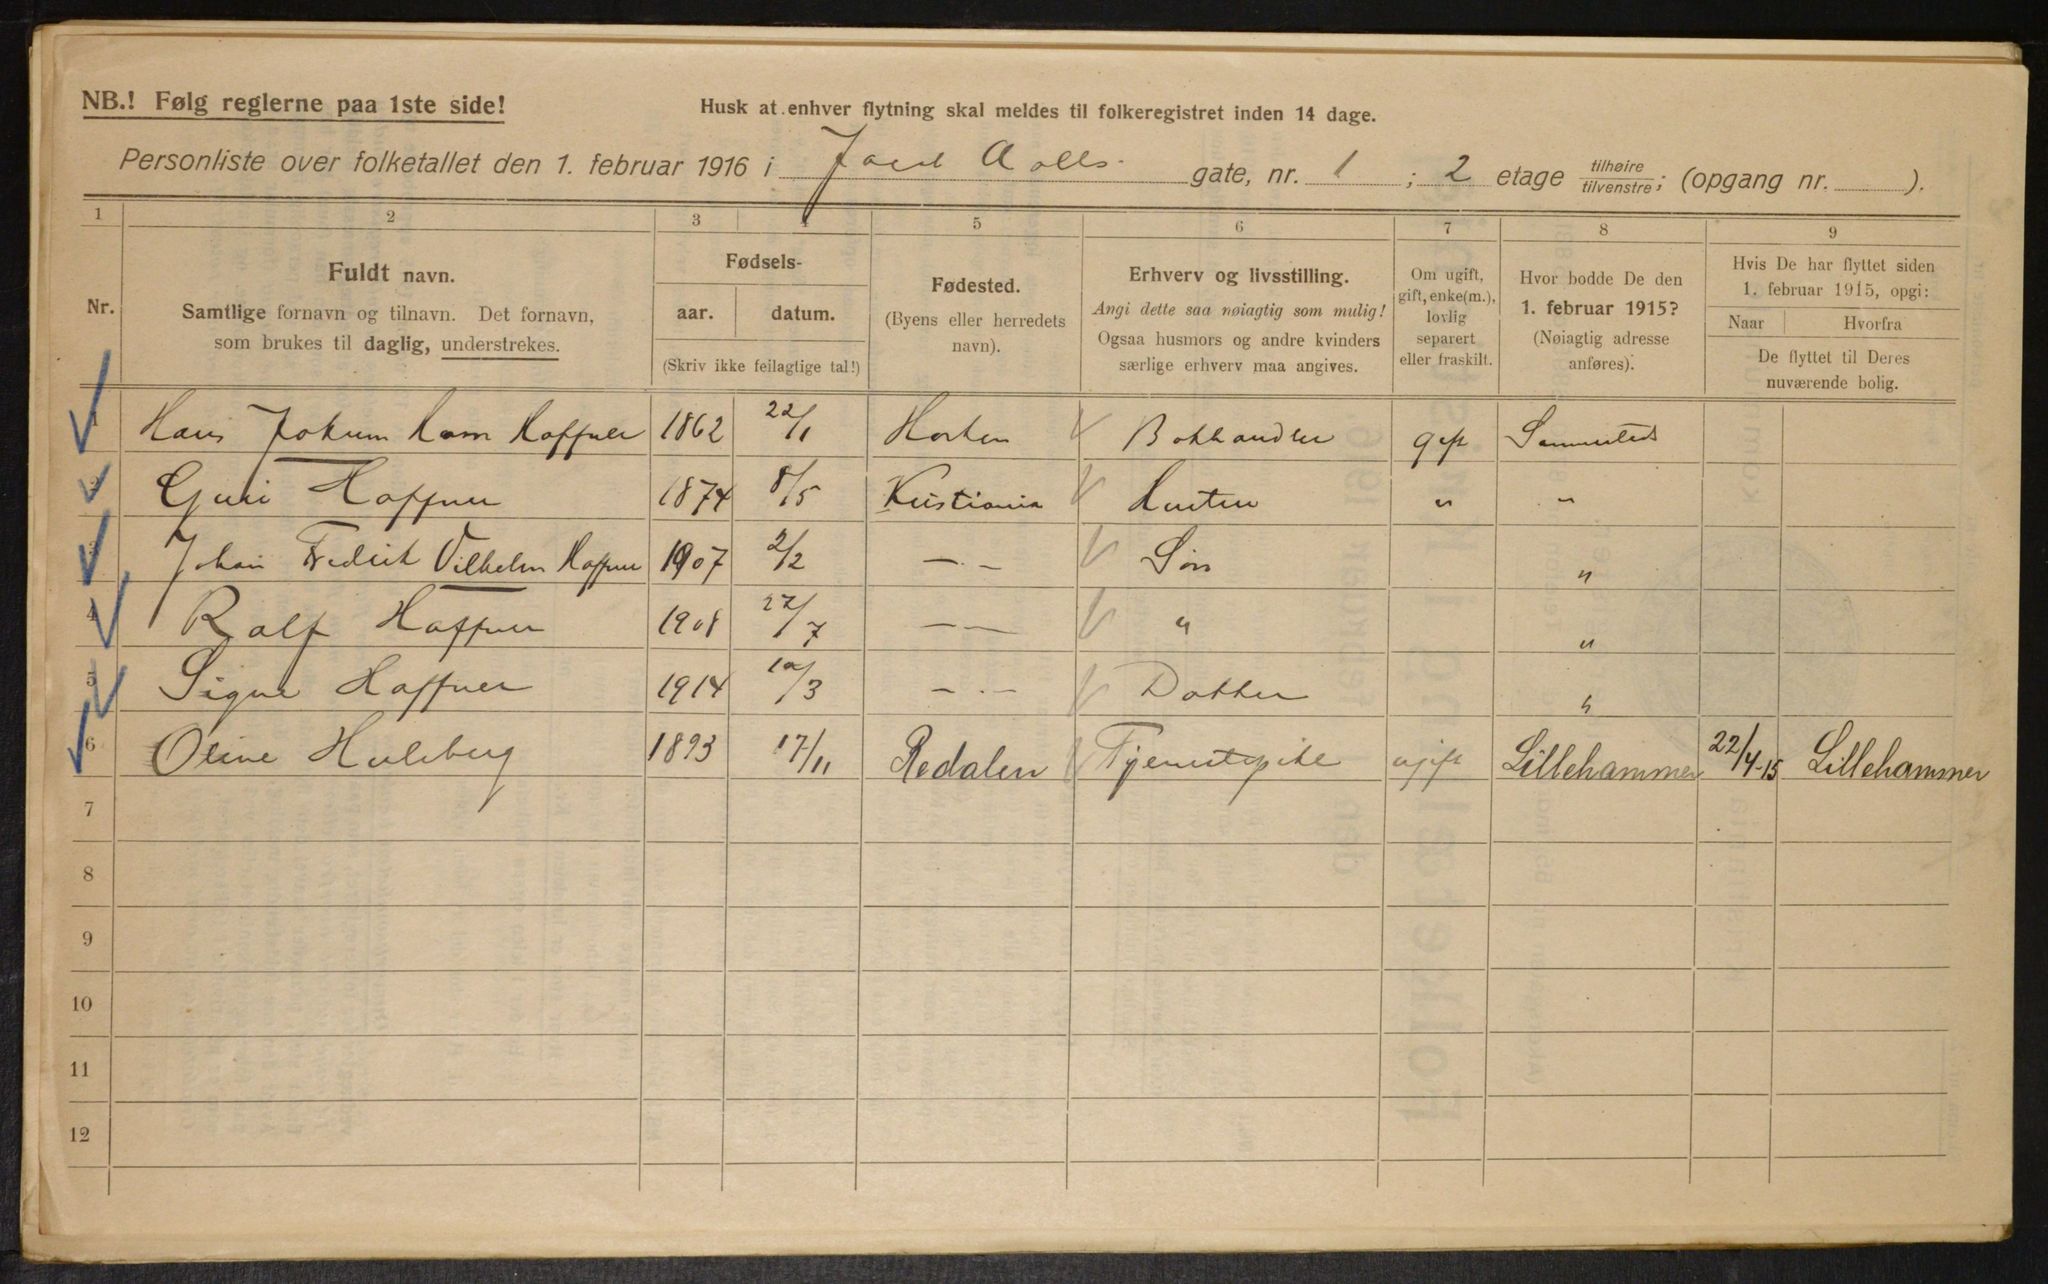 NB.! Følg reglerne paa 1ste side!
Husk at enhver flytning skal meldes til folkeregistret inden 14 dage.
Personliste over folketallet den 1. februar 1916 i Jacob Aalls gate, nr. 1 ; 2 etage tilhøire/tilvenstre; (opgang nr. ).
1 2 3 4 5 6 7 8 9
Nr.
Fuldt navn.
Samtlige fornavn og tilnavn. Det fornavn,
som brukes til daglig, understrekes.
Fødsels-
aar. datum.
(Skriv ikke feilagtige tal!)
Fødested.
(Byens eller herredets
navn).
Erhverv og livsstilling.
Angi dette saa nøiagtig som mulig!
Ogsaa husmors og andre kvinders
særlige erhverv maa angives.
Om ugift,
gift, enke(m.),
lovlig
separert
eller fraskilt.
Hvor bodde De den
1. februar 1915?
(Nøiagtig adresse
anføres).
Hvis De har flyttet siden
1. februar 1915, opgi:
Naar Hvorfra
De flyttet til Deres
nuværende bolig.
1 Hans Jokum Horn Haffner 1862 22/1 Horten Bokhandler gift Sammesteds
2 Guri Haffner 1874 8/5 Kristiania Hustru " "
3 Johan Fredrik Vilhelm Haffner 1907 2/2 — . — Søn "
4 Rolf Haffner 1908 27/7 — — " "
5 Signe Haffner 1914 10/3 — . — Datter "
6 Oline Hulsberg 1893 17/11 Redalen Tjenestepike ugift Lillehammer 22/4-15 Lillehammer
7
8
9
10
11
12